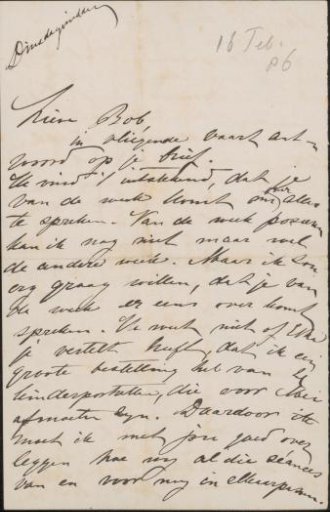 Dinsdagmiddag
16 Feb.
86
Lieve Bob
in vliegende vaart ant-
woord op je brief.
Ik vind 't uitstekend, dat je
van de week komt om over alles
te spreken. Van de week poseeren
kan ik nog niet maar wel
de andere week. Maar ik zou
erg graag willen, dat je van
de week er eens over komt
spreken. Ik weet niet of
je verteld heeft, dat ik een
groote bestelling heb van 4
kinderportretten, die voor Mei
af moeten zyn. Daardoor
moet ik met jou goed over
leggen hoe wy al die séances
van en voor nu in elkaar passen.